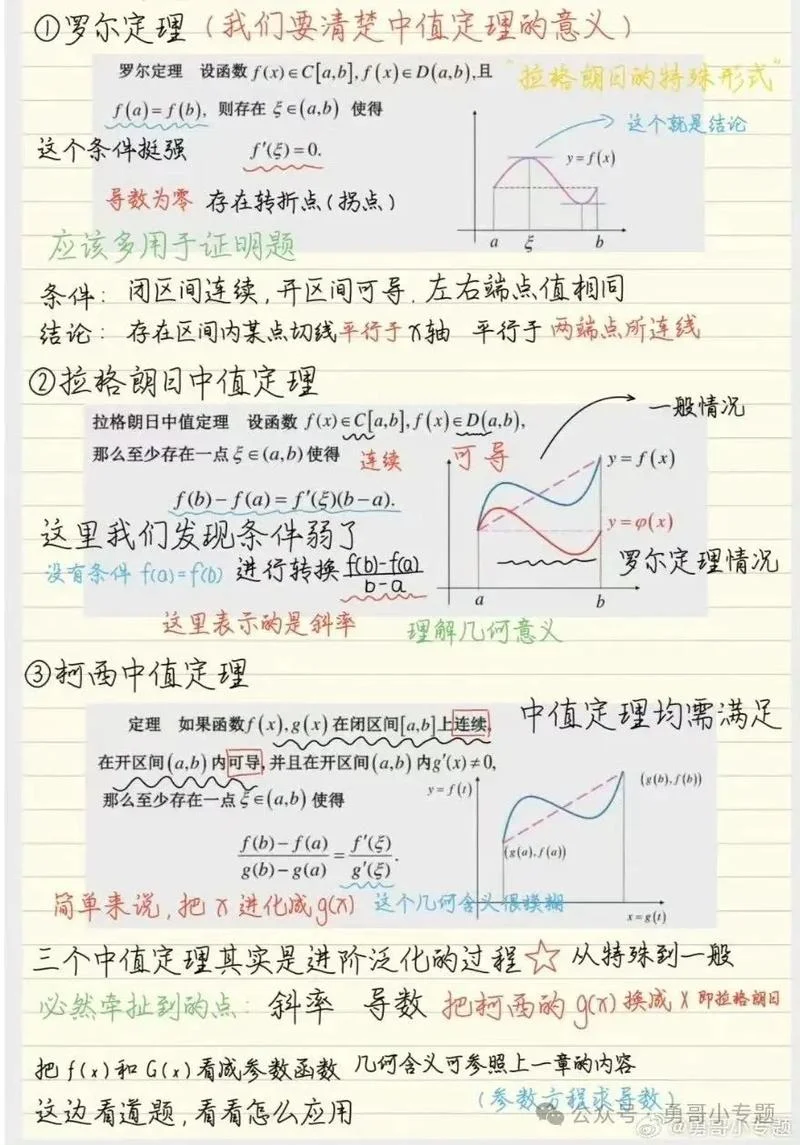 ①罗尔定理(我们要清楚中值定理的意义)
罗尔定理 设函数 f(x)∈C[a,b],f(x)∈D(a,b),且
"拉格朗日的特殊形式"
f(a)=f(b), 则存在 ξ∈(a,b) 使得
这个就是结论
这个条件挺强 f′(ξ)=0.
y=f(x)
导数为零 存在转折点(拐点)
a ξ b
应该多用于证明题
条件: 闭区间连续,开区间可导.左右端点值相同
结论: 存在区间内某点切线平行于x轴 平行于 两端点所连线
②拉格朗日中值定理
拉格朗日中值定理 设函数 f(x)∈C[a,b],f(x)∈D(a,b),
一般情况
那么至少存在一点 ξ∈(a,b)使得 连续 可导
y=f(x)
f(b)−f(a)=f′(ξ)(b−a).
y=φ(x)
这里我们发现条件弱了
罗尔定理情况
没有条件 f(a)=f(b) 进行转换 f(b)-f(a)
b-a
a b
这里表示的是斜率 理解几何意义
③柯西中值定理
定理 如果函数f(x),g(x)在闭区间[a,b]上连续,
中值定理均需满足
在开区间(a,b)内可导,并且在开区间(a,b)内g′(x)≠0,
y=f(t) (g(b),f(b))
那么至少存在一点 ξ∈(a,b)使得
f(b)−f(a) = f′(ξ)
g(b)−g(a) g′(ξ).
(g(a),f(a))
简单来说,把 x 进化成g(x) 这个几何含义很模糊
x=g(t)
三个中值定理其实是进阶泛化的过程☆ 从特殊到一般
必然牵扯到的点: 斜率 导数 把柯西的 g(x) 换成 x 即拉格朗日
把 f(x)和 G(x)看成参数函数 几何含义可参照上一章的内容
(参数方程求导数)
这边看道题,看看怎么应用
公众号·勇哥小专题
@勇哥小专题